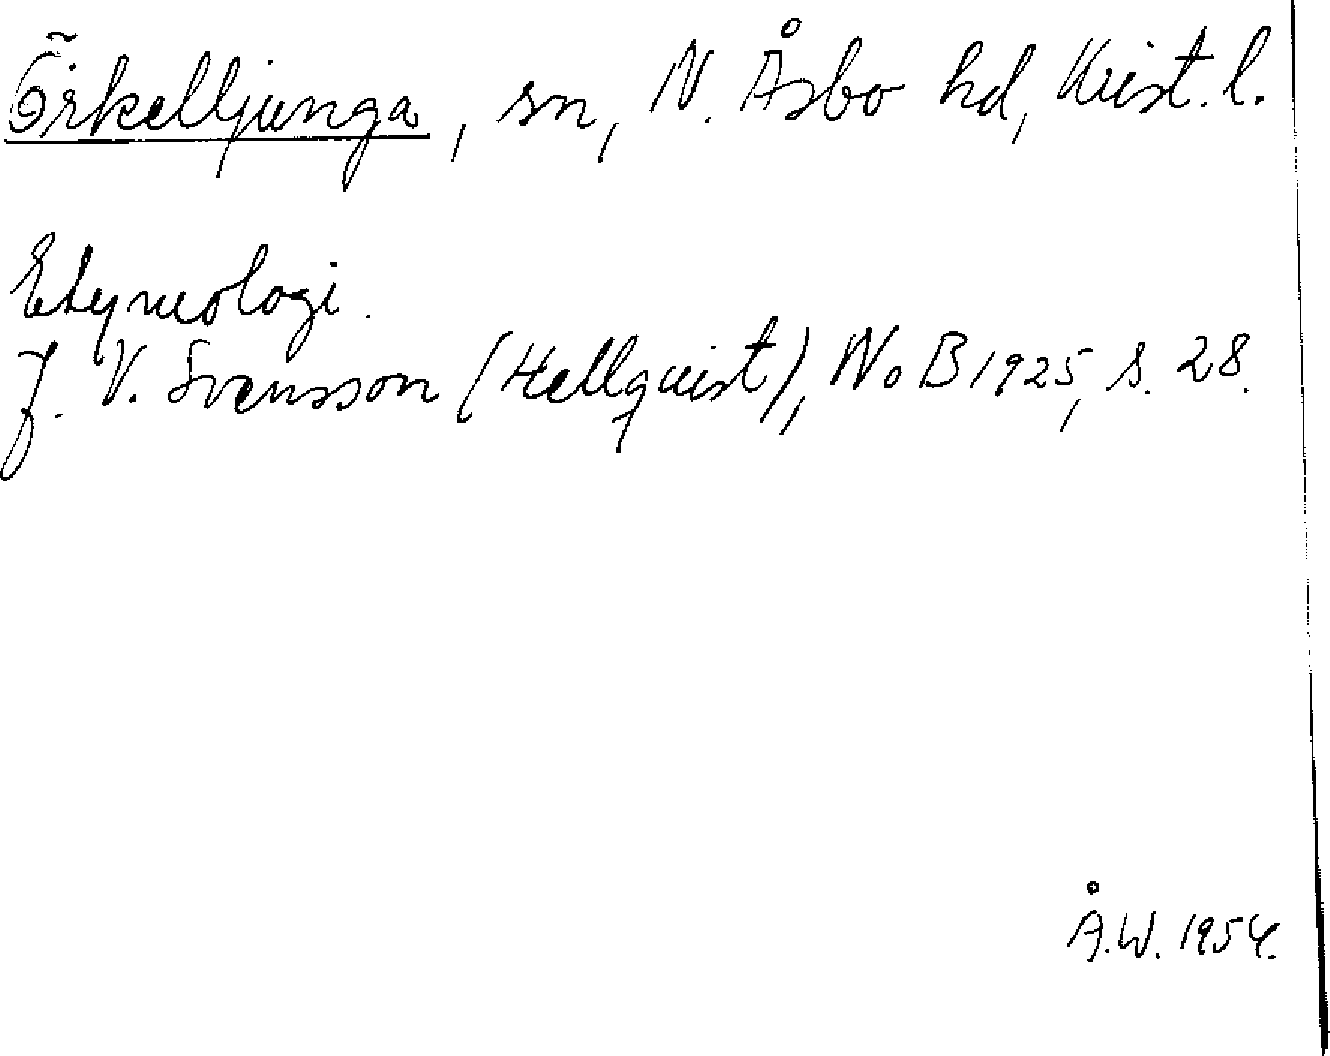 Örkelljunga, sn, N. Åsbo hd, Krist. l.
Etymologi.
J. V. Svensson (Hellquist), NoB 1925, s. 28.
Å.W. 1954.